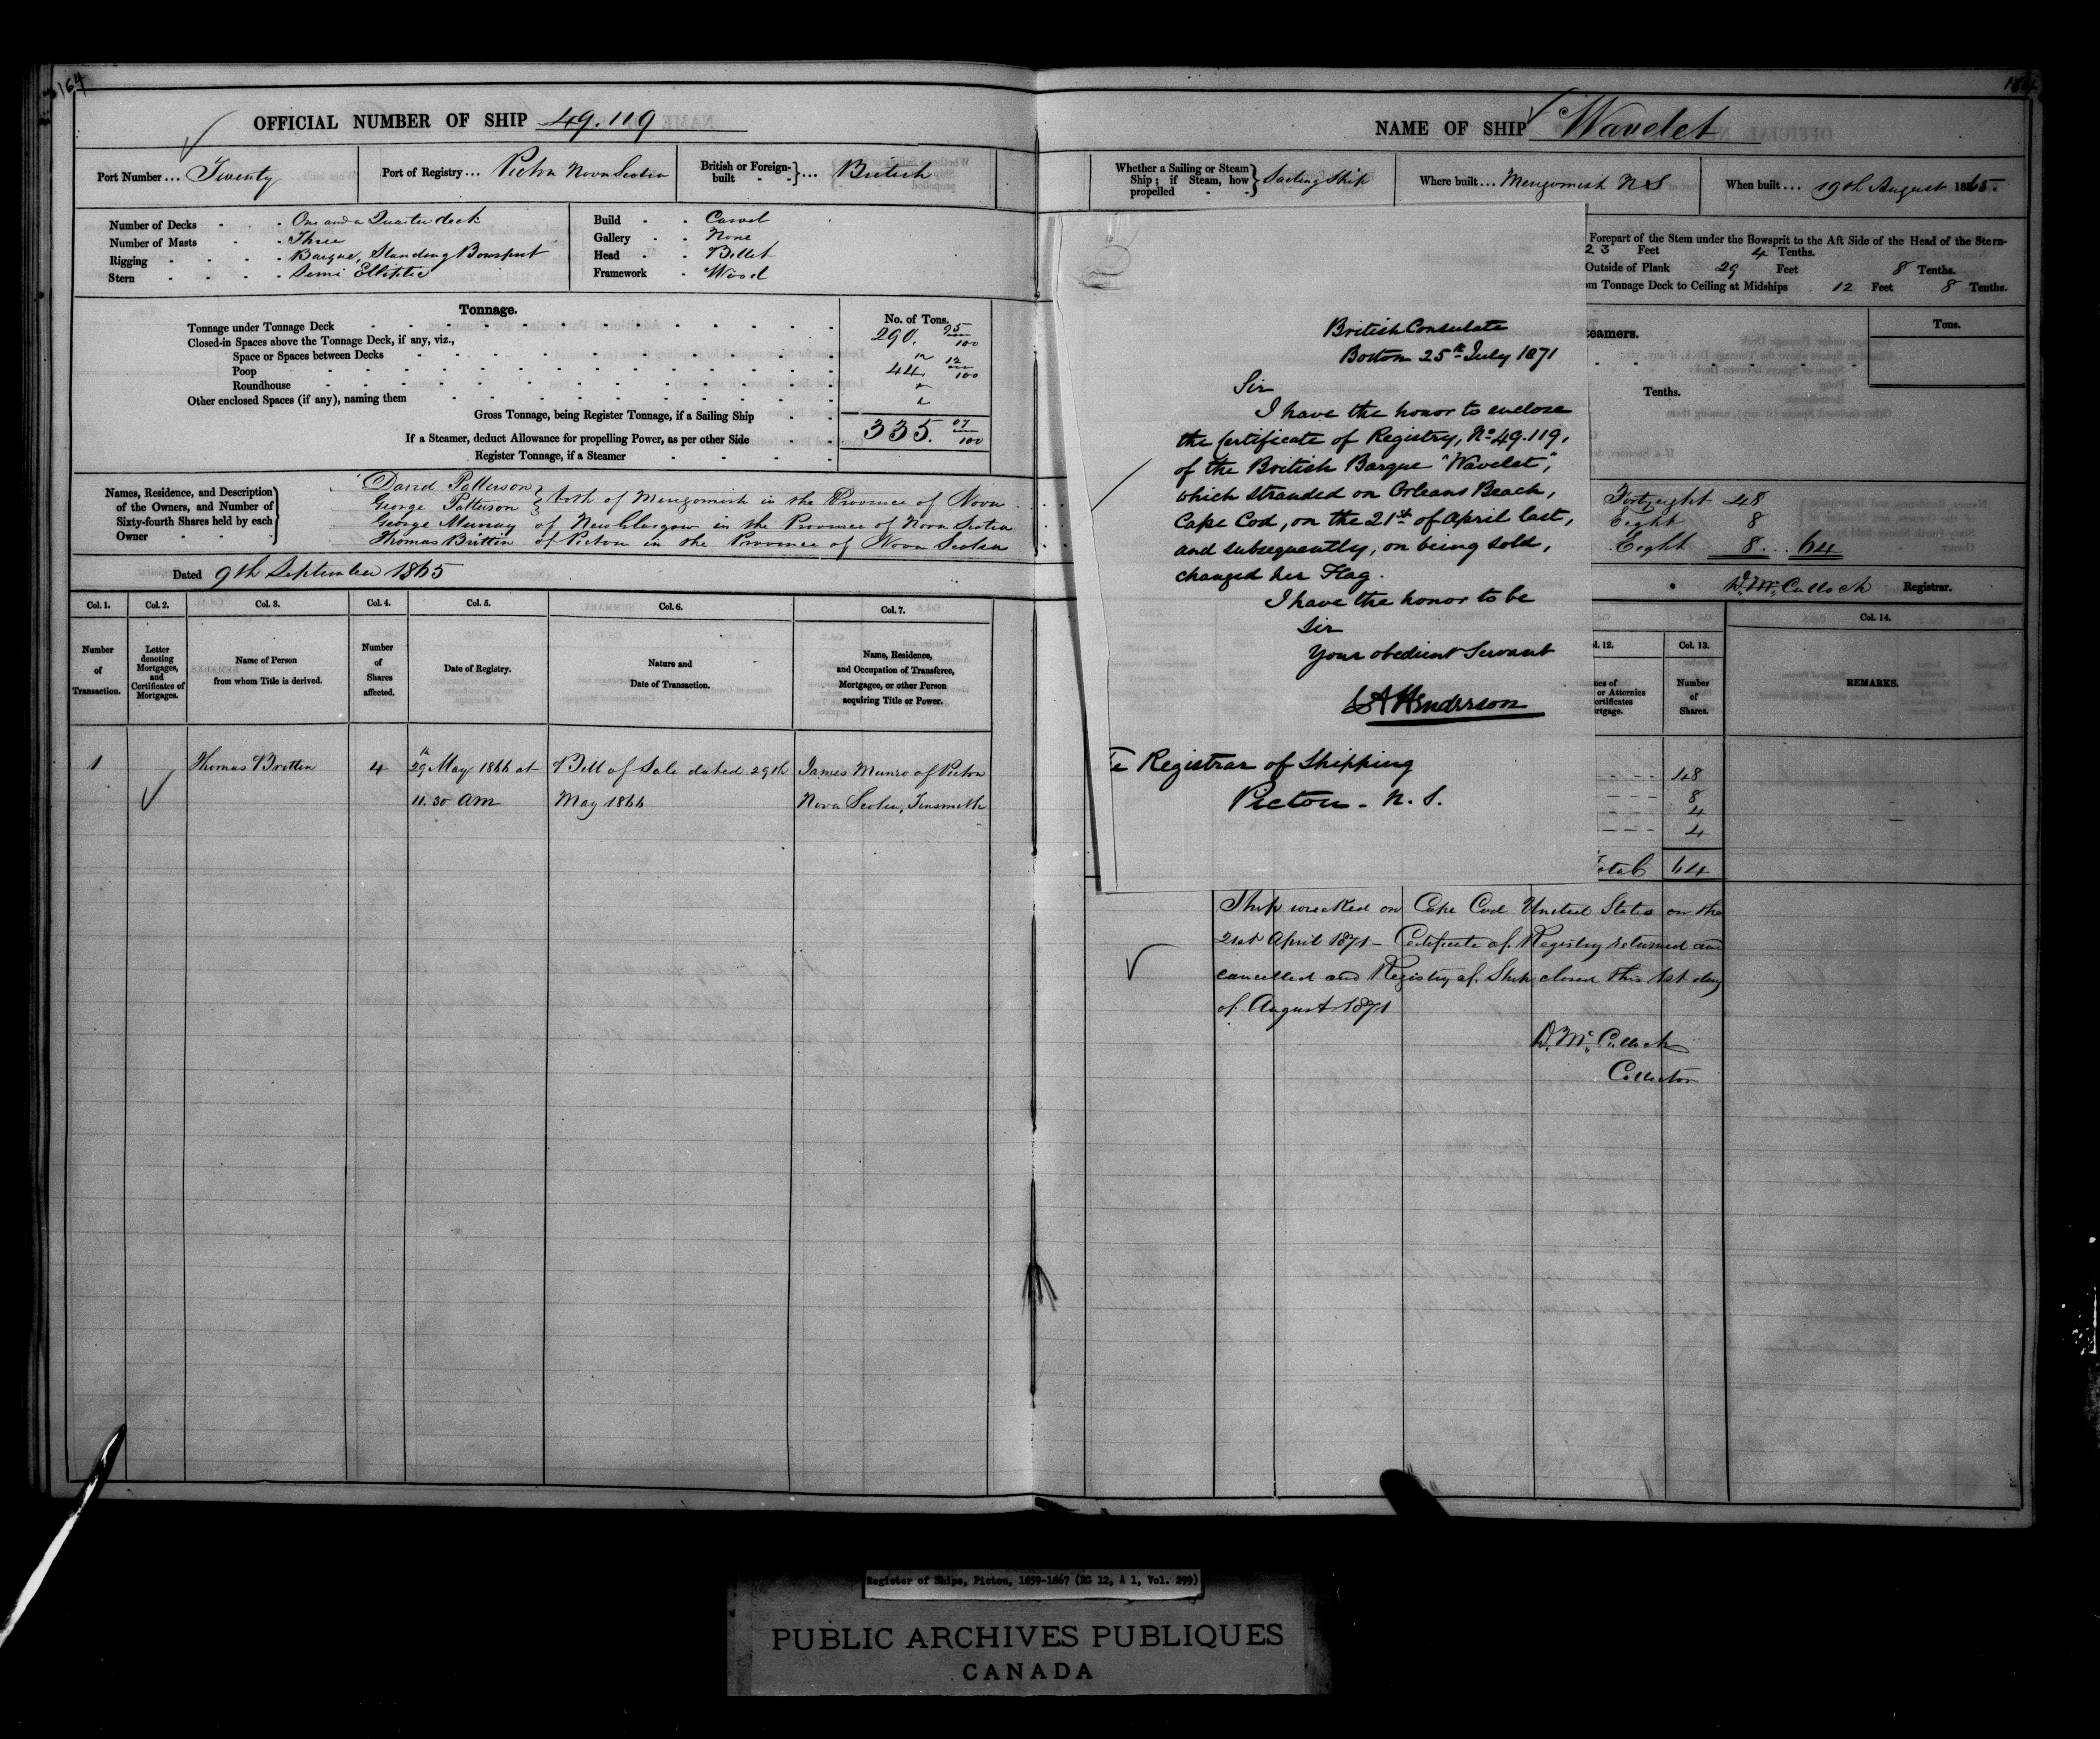 164
164
OFFICIAL NUMBER OF SHIP 49.119
Port Number ... Twenty
Port of Registry ... Pictou Nova Scotia
British or Foreign-built } ... British
Number of Decks - - One and a Quarter deck
Number of Masts - - Three
Rigging - - - - Barque, Standing Bowsprit
Stern - - - - Semi Elliptic
Build - - Carvel
Gallery - - None
Head - - Billet
Framework - Wood
Tonnage.
No. of Tons.
Tonnage under Tonnage Deck 290. 95/100
Closed-in Spaces above the Tonnage Deck, if any, viz.,
Space or Spaces between Decks
Poop 44 12/100
Roundhouse
Other enclosed Spaces (if any), naming them
Gross Tonnage, being Register Tonnage, if a Sailing Ship 335. 07/100
If a Steamer, deduct Allowance for propelling Power, as per other Side
Register Tonnage, if a Steamer
Names, Residence, and Description of the Owners, and Number of Sixty-fourth Shares held by each Owner
David Patterson
George Patterson } both of Merigomish in the Province of Nova
George Murray of New Glasgow in the Province of Nova Scotia
Thomas Brittin of Pictou in the Province of Nova Scotia
Dated 9th September 1865
Col. 1. Col. 2. Col. 3. Col. 4. Col. 5. Col. 6. Col. 7.
Number of Transaction.
Letter denoting Mortgages, and Certificates of Mortgages.
Name of Person from whom Title is derived.
Number of Shares affected.
Date of Registry.
Nature and Date of Transaction.
Name, Residence, and Occupation of Transferee, Mortgagee, or other Person acquiring Title or Power.
1 Thomas Brittin 4 29th May 1866 at Bill of Sale dated 29th James Munro of Pictou
11.30 AM May 1866 Nova Scotia, Tinsmith
NAME OF SHIP Wavelet
Whether a Sailing or Steam Ship; if Steam, how propelled } Sailing Ship
Where built ... Merigomish N S
When built ... 19th August 1865.
Forepart of the Stem under the Bowsprit to the Aft Side of the Head of the Stern-
23 Feet 4 Tenths.
Outside of Plank 29 Feet 8 Tenths.
om Tonnage Deck to Ceiling at Midships 12 Feet 8 Tenths.
eamers.
Tons.
Tenths.
Forty eight 48
Eight 8
Eight 8 ... 64
D. McCulloch Registrar.
l. 12. Col. 13. Col. 14.
nes of or Attornies ertificates rtgage.
Number of Shares.
REMARKS.
48
8
4
4
otal 64
British Consulate
Boston 25th July 1871
Sir
I have the honor to enclose
the Certificate of Registry, No 49.119,
of the British Barque "Wavelet",
which stranded on Orleans Beach,
Cape Cod, on the 21st of April last,
and subsequently, on being sold,
changed her Flag.
I have the honor to be
Sir
Your obedient Servant
Henderson
Registrar of Shipping
Pictou - N. S.
Ship wrecked on Cape Cod United States on the
21st April 1871 - Certificate of Registry returned and
cancelled and Registry of Ship closed this 1st day
of August 1871
D. McCulloch
Collector
Register of Ships, Pictou, 1859-1867 (RG 12, A 1, Vol. 299)
PUBLIC ARCHIVES PUBLIQUES
CANADA